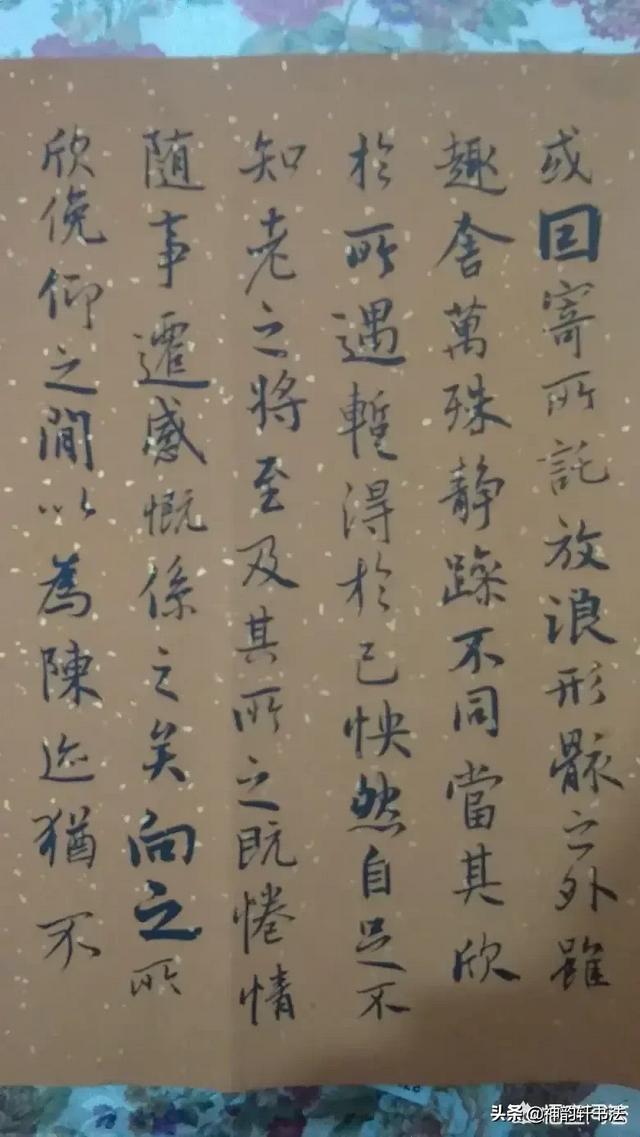 或因寄所託放浪形骸之外雖
趣舍萬殊静躁不同當其欣
於所遇暫得於己怏然自足不
知老之將至及其所之既惓情
随事遷感慨係之矣向之所
欣俛仰之間以為陳迹猶不
头条@神韵轩书法